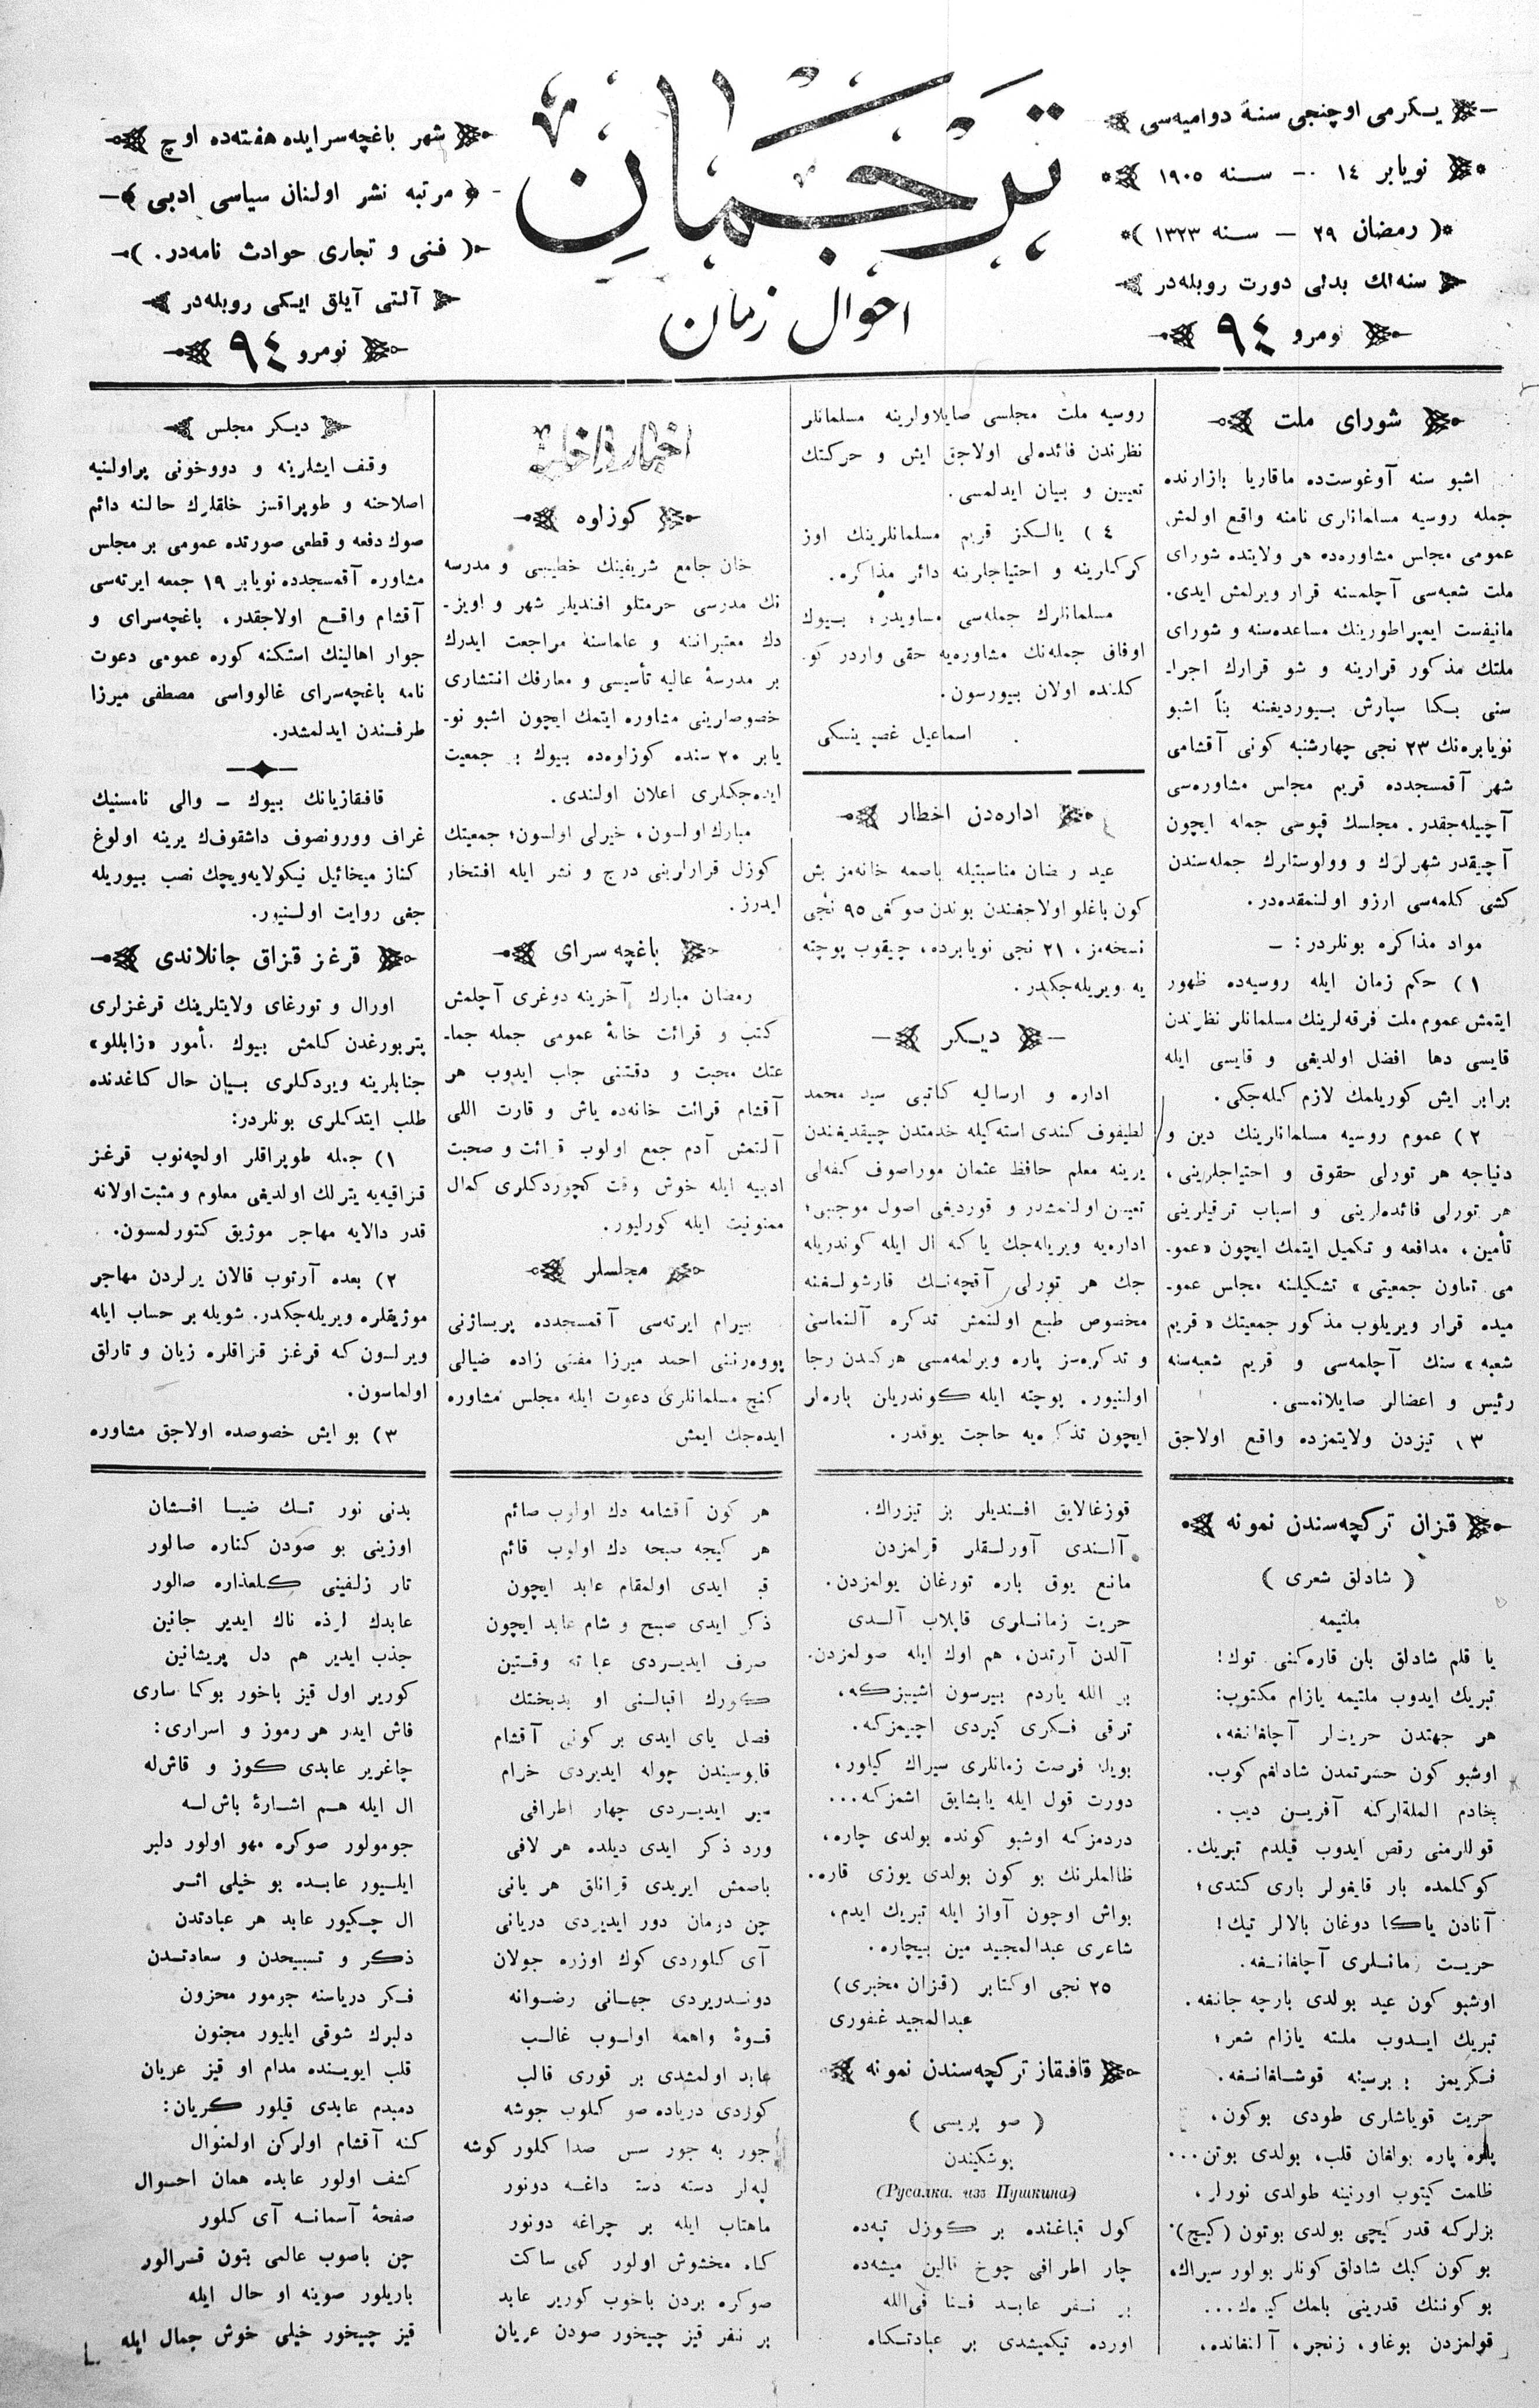 يكرمی اوچنجی سنهٔ دواميه‌سی
نويابر ١٤ — سنه ١٩٠٥
( رمضان ٢٩ — سنه ١٣٢٣ )
سنه‌لك بدلی دورت روبله‌در
نومرو ٩٤
ترجمان
احوال زمان
شهر باغچه‌سرايده هفته‌ده اوچ
مرتبه نشر اولنان سياسی ادبی
( فنی و تجاری حوادث نامه‌در. )
آلتی آيلق ايكی روبله‌در
نومرو ٩٤
شورای ملت
اشبو سنه آوغوست‌ده ماقاريا بازارنده
جمله روسيه مسلمانلری نامنه واقع اولمش
عمومی مجلس مشاوره‌ده هر ولايتده شورای
ملت شعبه‌سی آچلمسنه قرار ويرلمش ايدی.
مانيفست ايمپراطورينك مساعده‌سنه و شورای
ملتك مذكور قرارينه و شو قرارك اجرا-
سنی بكا سپارش بيورديغنه بناً اشبو
نويابره‌نك ٢٣ نجی چهارشنبه كونی آقشامی
شهر آقمسجدده قريم مجلس مشاوره‌سی
آچيله‌جقدر. مجلسك قپوسی جمله ايچون
آچيقدر شهرلرك و وولوستلرك جمله‌سندن
كشی كلمه‌سی ارزو اولنمقده‌در.
مواد مذاكره بونلردر: —
١) حكم زمان ايله روسيه‌ده ظهور
ايتمش عموم ملت فرقه‌لرينك مسلمانلر نظرندن
قايسی دها افضل اولديغی و قايسی ايله
برابر ايش كوريلمك لازم كله‌جكی.
٢) عموم روسيه مسلمانلرينك دين و
دنياجه هر تورلی حقوق و احتياجلرينی،
هر تورلی فائده‌لرينی و اسباب ترقيلرينی
تأمين، مدافعه و تكميل ايتمك ايچون «عمو-
می تعاون جمعيتی» تشكيلنه مجلس عمو-
ميده قرار ويريلوب مذكور جمعيتك «قريم
شعبه» سنك آچلمه‌سی و قريم شعبه‌سنه
رئيس و اعضالر صايلانمسی.
٣) تيزدن ولايتمزده واقع اولاجق
روسيه ملت مجلسی صايلاولرينه مسلمانلر
نظرندن فائده‌لی اولاجق ايش و حركتك
تعيين و بيان ايدلمسی.
٤) يالكز قريم مسلمانلرينك اوز
كركلرينه و احتياجلرينه دائر مذاكره.
مسلمانلرك جمله‌سی مساويدر؛ بيوك
اوفاق جمله‌نك مشاوره‌يه حقی واردر كو-
كلنده اولان بيورسون.
اسماعيل غصپرينسكی
اداره‌دن اخطار
عيد رمضان مناسبتيله باصمه خانه‌مز بش
كون باغلو اولاجغندن بوندن صوكغی ٩٥ نجی
نسخه‌مز، ٢١ نجی نويابرده، چيقوب پوچته
يه ويريله‌جكدر.
ديكر
اداره و ارساليه كاتبی سيد محمد
لطيفوف كندی استه‌كيله خدمتدن چيقديغندن
يرينه معلم حافظ عثمان موراصوف كفه‌لی
تعيين اولنمشدر و قورديغی اصول موجبی؛
اداره‌يه ويريله‌جك ياكه ال ايله كوندريله
جك هر تورلی آقچه‌نك قارشولغنه
مخصوص طبع اولنمش تذكره آلنماسی
و تذكره‌سز پاره ويرلمه‌مسی هركسدن رجا
اولنيور. پوچته ايله كوندريلن پاره‌لر
ايچون تذكره‌يه حاجت يوقدر.
اخبار داخليه
كوزلوه
خان جامع شريفينك خطيبی و مدرسه
نك مدرسی حرمتلو افنديلر شهر و اويز-
دك معتبراننه و علماسنه مراجعت ايدرك
بر مدرسهٔ عاليه تأسيسی و معارفك انتشاری
خصوصلرينی مشاوره ايتمك ايچون اشبو نو-
يابر ٢٠ سنده كوزلوه‌ده بيوك بر جمعيت
ايده‌جكلری اعلان اولندی.
مبارك اولسون، خيرلی اولسون؛ جمعيتك
كوزل قرارلرينی درج و نشر ايله افتخار
ايدرز.
باغچه سرای
رمضان مبارك آخرينه دوغری آچلمش
كتب و قرائت خانهٔ عمومی جمله جما-
عتك محبت و دقتنی جلب ايدوب هر
آقشام قرائت خانه‌ده ياش و قارت اللی
آلتمش آدم جمع اولوب قرائت و صحبت
ادبيه ايله خوش وقت كچوردكلری كمال
ممنونيت ايله كورليور.
مجلسلر
بيرام ايرته‌سی آقمسجدده پريساژنی
پووه‌رننی احمد ميرزا مفتی زاده ضيالی
كنج مسلمانلری دعوت ايله مجلس مشاوره
ايده‌جك ايمش
ديكر مجلس
وقف ايشلرينه و دووخونی پراولنيه
اصلاحنه و طوپراقسز خلقلرك حالنه دائم
صوك دفعه و قطعی صورتده عمومی بر مجلس
مشاوره آقمسجدده نويابر ١٩ جمعه ايرته‌سی
آقشام واقع اولاجقدر، باغچه‌سرای و
جوار اهالينك استكنه كوره عمومی دعوت
نامه باغچه‌سرای غالوواسی مصطفی ميرزا
طرفندن ايدلمشدر.
قافقازيانك بيوك — والی نامسنيك
غراف وورونصوف داشقوفك يرينه اولوغ
كناز ميخائيل نيكولايه‌ويچك نصب بيوريله
جغی روايت اولنيور.
قرغز قزاق جانلاندی
اورال و تورغای ولايتلرينك قرغزلری
پتربورغدن كلمش بيوك مأمور «زابللو»
جنابلرينه ويردكلری بيان حال كاغدنده
طلب ايتدكلری بونلردر:
١) جمله طوپراقلر اولچه‌نوب قرغز
قزاقيه‌يه يترلك اولديغی معلوم و مثبت اولانه
قدر دالايه مهاجر موژيق كتورلمسون.
٢) بعده آرتوب قالان يرلردن مهاجر
موژيقلره ويريله‌جكدر. شويله بر حساب ايله
ويرلسون كه قرغز قزاقلره زيان و تارلق
اولماسون.
٣) بو ايش خصوصده اولاجق مشاوره
قزان تركچه‌سندن نمونه
( شادلق شعری )
ملتيمه
يا قلم شادلق بلن قاره‌كنی توك!
تبريك ايدوب ملتيمه يازام مكتوب:
هر جهتدن حريتلر آچلغانغه،
اوشبو كون حسرتمدن شادلغم كوب.
قوللرمنی رقص ايدوب قيلدم تبريك.
كوكلمده بار قايغولر باری كتدی؛
آنادن ياڭا دوغان بالالر تيك!
حريت زمانلری آچلغانغه.
اوشبو كون عيد بولدی بارچه جانغه.
تبريك ايدوب ملته يازام شعر؛
فكريمز بربرسينه قوشلغانغه.
حريت قوياشلری طودی بوكون،
پاره پاره بولغان قلب، بولدی بوتن...
ظلمت كيتوب اورنينه طولدی نورلر،
بزلركه قدر كيچی بولدی بوتون (كيچ).
بوكون كبك شادلق كونلر بولور سيراك،
بوكوننك قدرينی بلمك كيرك...
قولمزدن بوغاو، زنجر، آلنغانده،
قوزغالايق افنديلر بز تيزراك.
آلندی آورلقلر قرلمزدن
مانع يوق باره تورغان يولمزدن.
حريت زمانلری قاپلاب آلدی
آلدن آرتدن، هم اوك ايله صولمزدن.
بر الله ياردم بيرسون اشيبزكه،
ترقی فكری كيردی اچيمزكه.
بويله فرصت زمانلری سيراك كيلور،
دورت قول ايله يابشايق اشمزكه...
دردمزكه اوشبو كونده بولدی چاره،
ظالملرنك بو كون بولدی يوزی قاره.
بواش اوچون آواز ايله تبريك ايدم،
شاعری عبدالمجيد مين بيچاره.
٢٥ نجی اوكتابر (قزان مخبری)
عبدالمجيد غفوری
قافقاز تركچه‌سندن نمونه
( صو پريسی )
پوشكيندن
(Русалка. изз Пушкина)
كول قباغنده بر كوزل تپه‌ده
چار اطرافی چوخ قالين ميشه‌ده
بر نفر عابد فنا فی‌الله
اورده تيكميشدی بر عبادتكاه
هر كون آقشامه دك اولوب صائم
هر كيجه صبحه دك اولوب قائم
ذكر ايدی صبح و شام عابد ايچون
صرف ايديردی عباته وقتين
كورك اقبالنی او بدبختك
فصل يای ايدی بر كونی آقشام
قاپوسيندن چوله ايديردی خرام
سير ايديردی چهار اطرافی
ورد ذكر ايدی ديلده هر لافی
باصمش ايريدی قرانلق هر يانی
چن درمان دور ايديردی دريانی
آی كلوردی كوك اوزره جولان
دوندريردی جهانی رضوانه
قوهٔ واهمه اولوب غالب
عابد اولمشدی بر قوری قالب
كوردی درياده صو كلوب جوشه
جور به جور سس صدا كلور كوشه
لپه‌لر دسته دسته داغه دونور
ماهتاب ايله بر چراغه دونور
كاه مخشوش اولور كهی ساكت
صوكره بردن باخوب كورير عابد
بر نفر قيز چيخور صودن عريان
بدنی نور تك ضيا افشان
اوزينی بو صودن كناره صالور
تار زلفينی كلعذاره صالور
عابدك لرزه ناك ايدير جانين
جذب ايدير هم دل پريشانين
كورير اول قيز باخور بوكا ساری
فاش ايدر هر رموز و اسراری:
چاغرير عابدی كوز و قاش‌له
ال ايله هم اشارهٔ باش‌له
جومولور صوكره مهو اولور دلبر
ايليور عابده بو خيلی اثر
ال چكيور عابد هر عبادتدن
ذكر و تسبيحدن و سعادتدن
فكر درياسنه جرمور محزون
دلبرك شوقی ايليور مجنون
قلب ايوينده مدام او قيز عريان
دمبدم عابدی قيلور كريان:
كنه آقشام اولركن اولمنوال
كشف اولور عابده همان احسوال
صفحهٔ آسمانه آی كلور
چن باصوب عالمی بتون قرالور
باريلور صوينه او حال ايله
قيز چيخور خيلی خوش جمال ايله